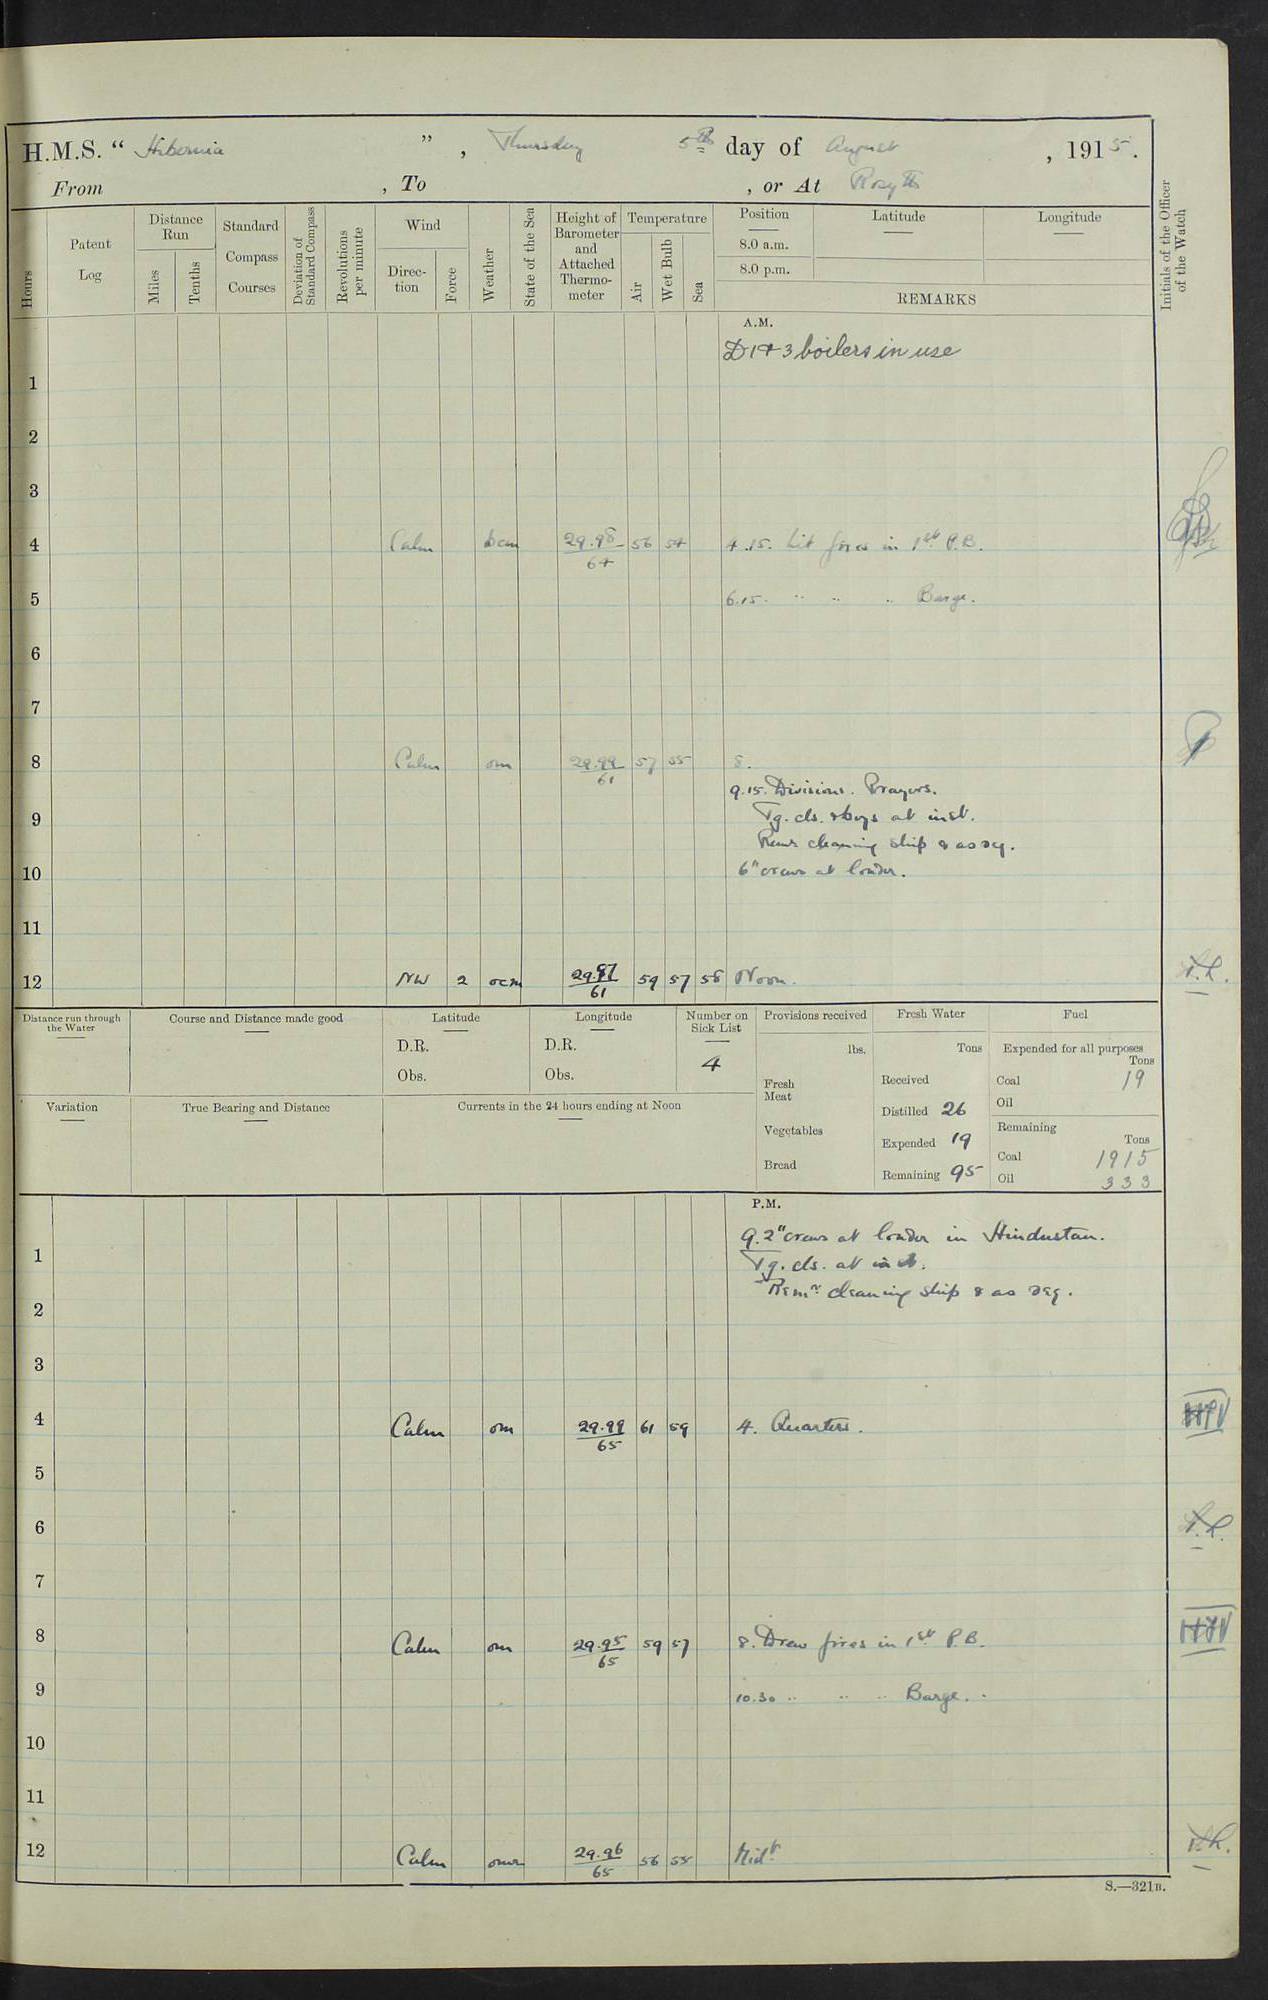 H.M.S. “ Hibernia ” , Thursday 5th day of August , 1915.
From , To , or At Rosyth
Hours
Patent Log
Distance Run
Miles
Tenths
Standard Compass Courses
Deviation of Standard Compass
Revolutions per minute
Wind
Direc-tion
Force
Weather
State of the Sea
Height of Barometer and Attached Thermo-meter
Temperature
Air
Wet Bulb
Sea
Position Latitude Longitude
8.0 a.m.
8.0 p.m.
REMARKS
Initials of the Officer of the Watch
A.M.
D 1 & 3 boilers in use
1
2
3
4 Calm bcm 29.98 56 54 4.15. Lit fires in 1st P.B.
64
5 6.15. " " " Barge.
6
7
8 Calm om 29.99 57 55 8.
61
9.15. Divisions. Prayers.
9 Tg. cls. & boys at inst.
Remr cleaning ship & as req.
10 6" crews at loader.
11
12 NW 2 ocm 29.97 59 57 58 Noon.
61
Distance run through the Water
Course and Distance made good
Latitude
D.R.
Obs.
Longitude
D.R.
Obs.
Number on Sick List
4
Provisions received
lbs.
Fresh Meat
Vegetables
Bread
Fresh Water
Tons
Received
Distilled 26
Expended 19
Remaining 95
Fuel
Expended for all purposes
Tons
Coal 19
Oil
Remaining
Tons
Coal 1915
Oil 333
Variation
True Bearing and Distance
Currents in the 24 hours ending at Noon
P.M.
9.2" crews at loader in Hindustan.
1 Tg. cls. at inst.
Remr cleaning ship & as req.
2
3
4 Calm om 29.99 61 59 4. Quarters.
65
5
6
7
8 Calm om 29.95 59 57 8. Drew fires in 1st P.B.
65
9 10.30 " " " Barge.
10
11
12 Calm 29.96 56 55 Midt
65
S.—321B.